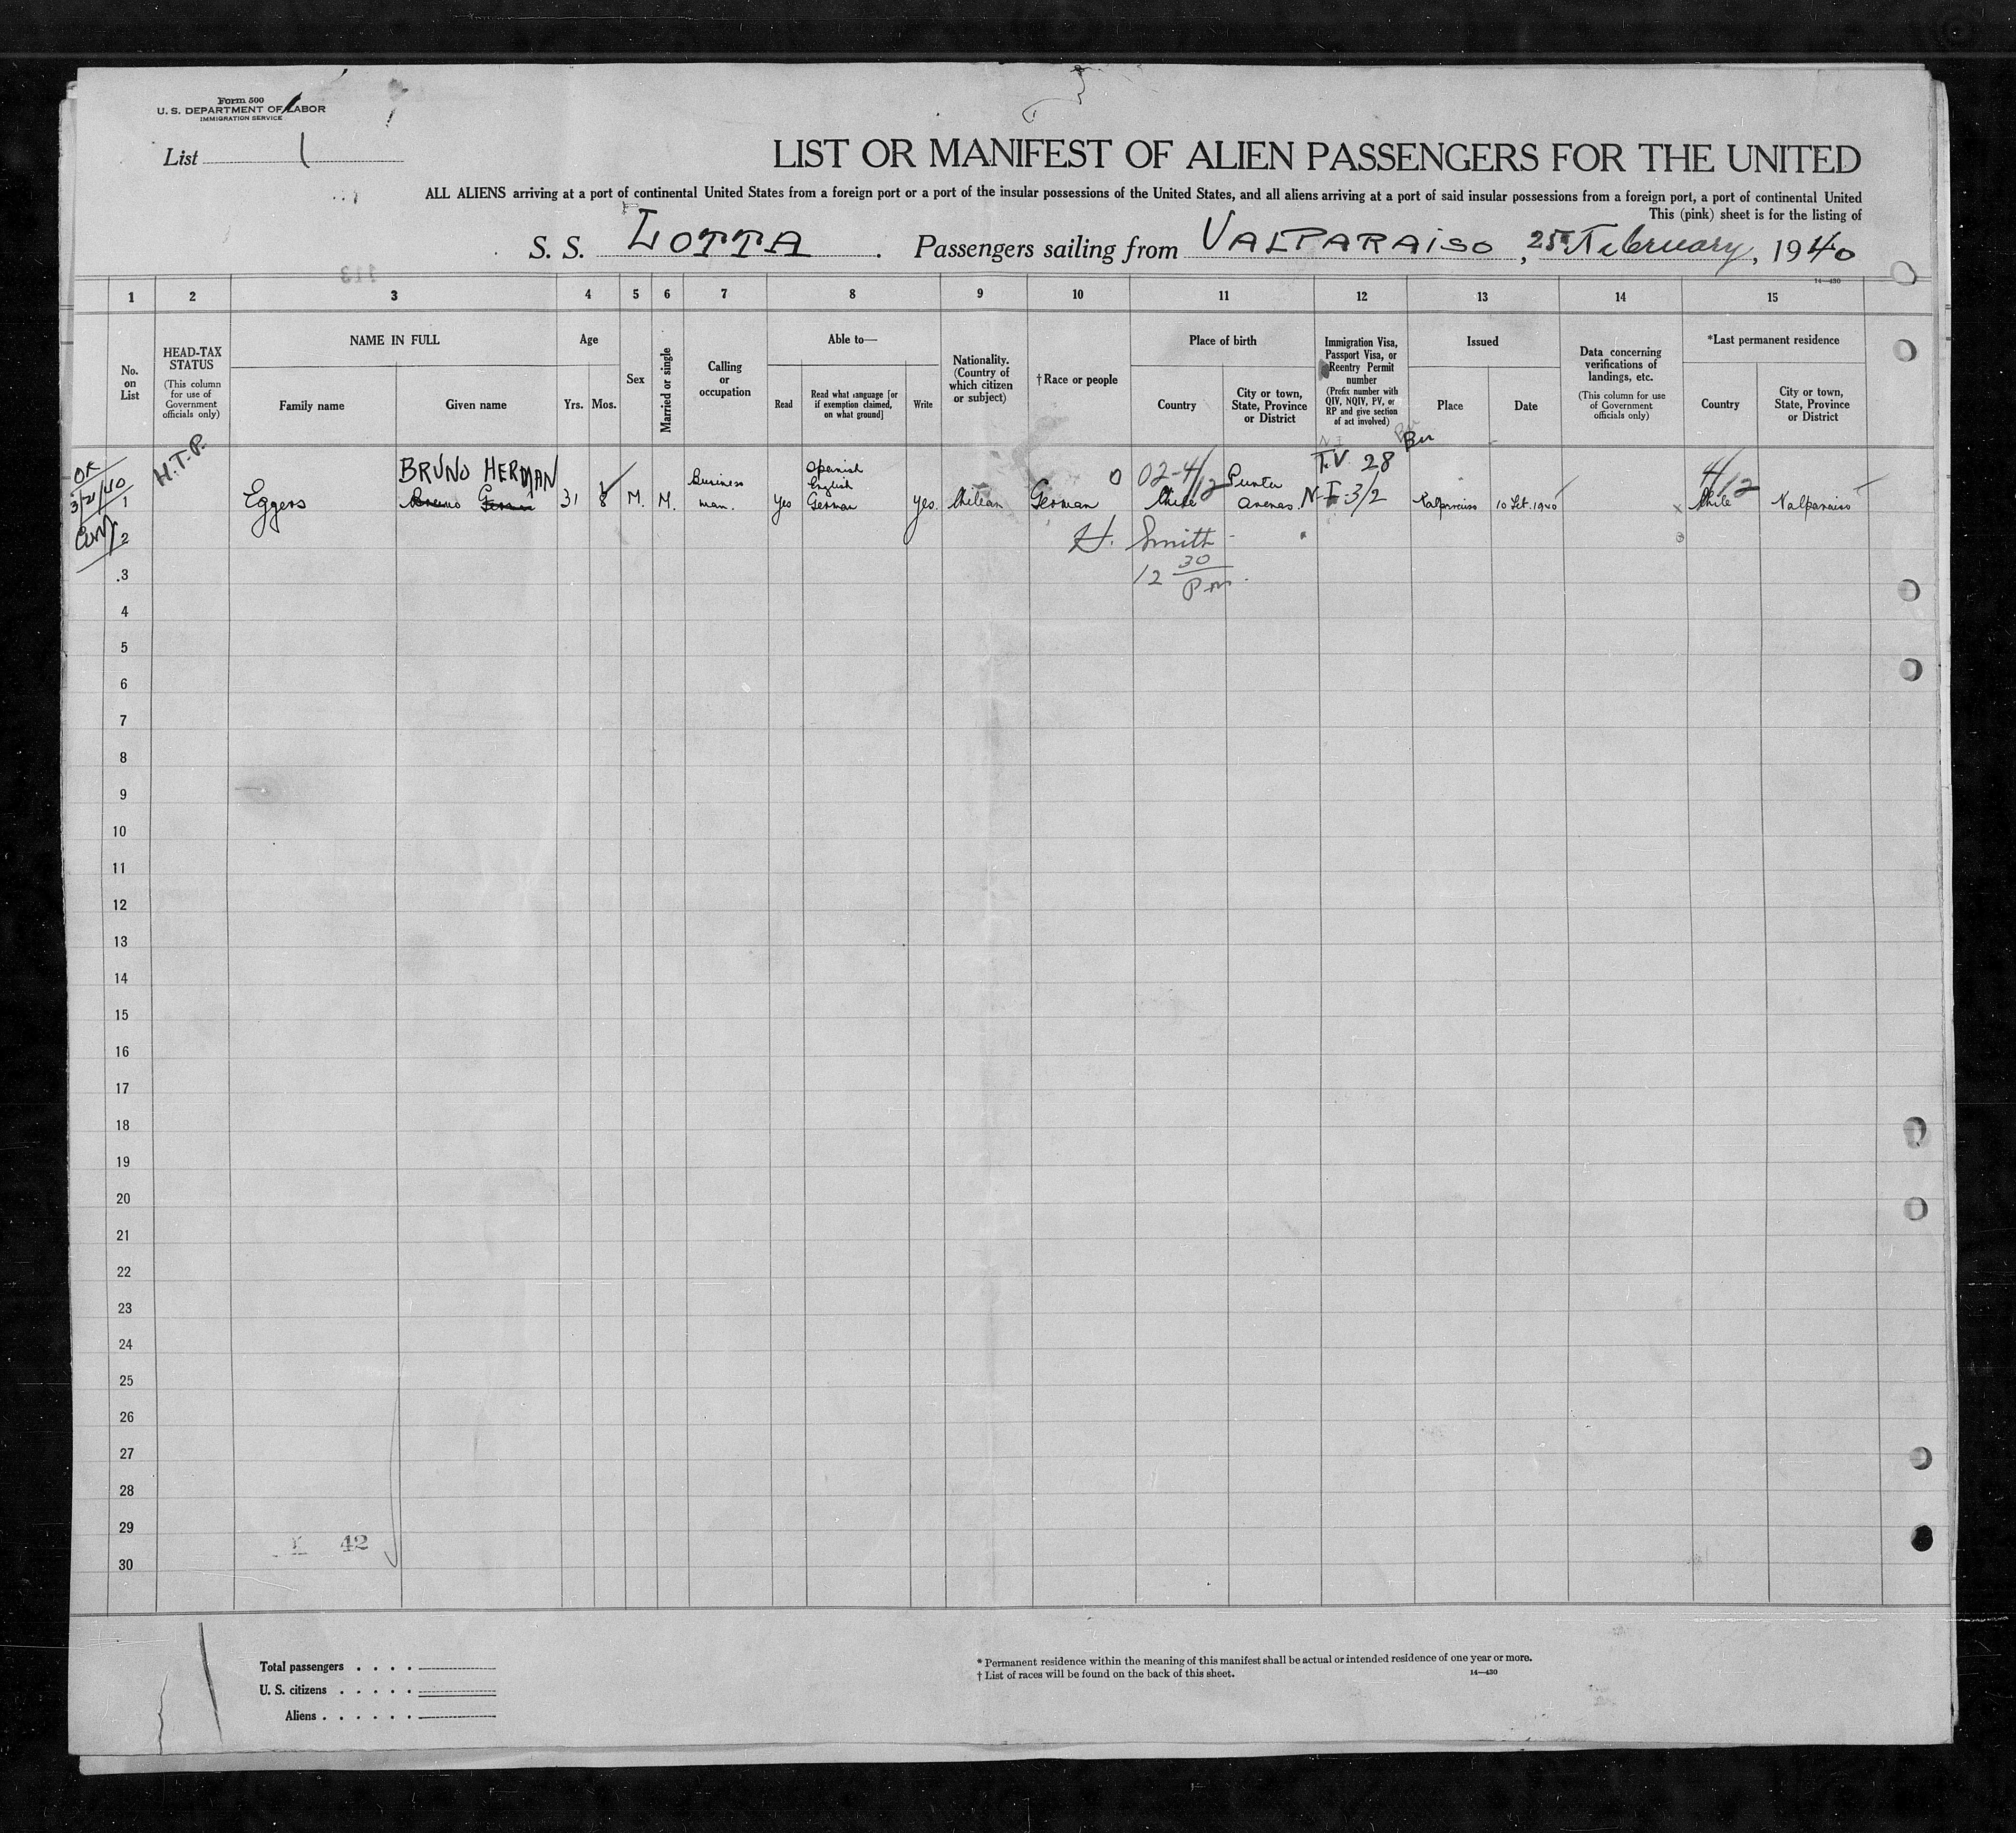 Form 500
U. S. DEPARTMENT OF LABOR
IMMIGRATION SERVICE
List 1
LIST OR MANIFEST OF ALIEN PASSENGERS FOR THE UNITED
ALL ALIENS arriving at a port of continental United States from a foreign port or a port of the insular possessions of the United States, and all aliens arriving at a port of said insular possessions from a foreign port, a port of continental United
This (pink) sheet is for the listing of
S. S. LOTTA . Passengers sailing from VALPARAISO, 25 February, 1940
113
14—430
1 2 3 4 5 6 7 8 9 10 11 12 13 14 15
No. on List
HEAD-TAX STATUS
(This column for use of Government officials only)
NAME IN FULL
Family name
Given name
Age
Yrs.
Mos.
Sex
Married or single
Calling or occupation
Able to—
Read
Read what language [or if exemption claimed, on what ground]
Write
Nationality. (Country of which citizen or subject)
†Race or people
Place of birth
Country
City or town, State, Province or District
Immigration Visa, Passport Visa, or Reentry Permit number
(Prefix number with QIV, NQIV, PV, or RP and give section of act involved)
Issued
Place
Date
Data concerning verifications of landings, etc.
(This column for use of Government officials only)
*Last permanent residence
Country
City or town, State, Province or District
OK
3/21/40
H.T.P.
BRUNO HERMAN
Spanish
English
0 02-4/12
T.V. 28
4/12
1 Eggers Bruno German 31 8 M. M. Business man. Yes German Yes. Chilean German Chile Punta Arenas. 3/2 Valparaiso 10 1940 Chile Valparaiso
2
H. Smith
12 30 P.M.
3
4
5
6
7
8
9
10
11
12
13
14
15
16
17
18
19
20
21
22
23
24
25
26
27
28
29
42
30
Total passengers . . . .
U. S. citizens . . . . .
Aliens . . . . . .
* Permanent residence within the meaning of this manifest shall be actual or intended residence of one year or more.
† List of races will be found on the back of this sheet.
14—430